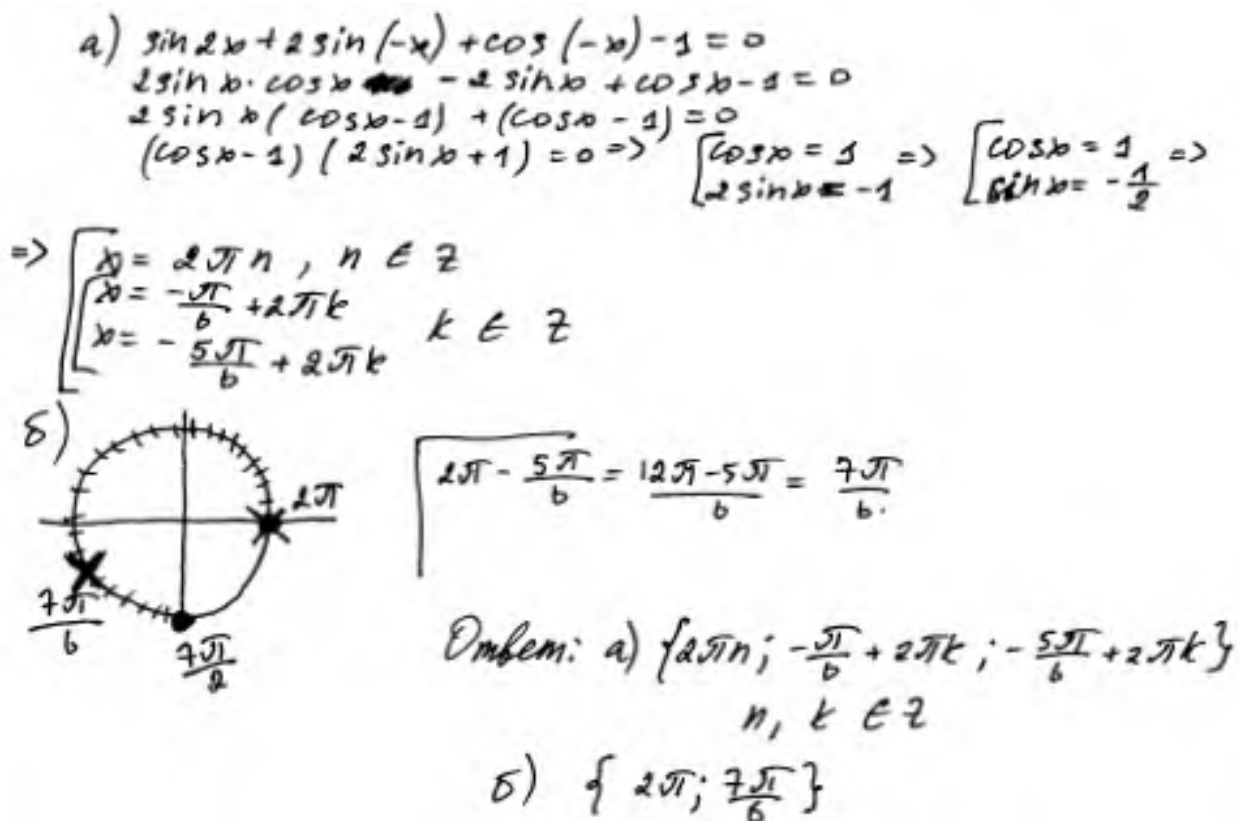 а) sin2x + 2sin(-x) + cos(-x) - 1 = 0
2sinx · cosx - 2sinx + cosx - 1 = 0
2sinx(cosx - 1) + (cosx - 1) = 0
(cosx - 1)(2sinx + 1) = 0 => [cosx = 1 2sinx = -1 => [cosx = 1 sinx = -1/2 =>
=> [x = 2πn, n ∈ Z
[x = -π/6 + 2πk
x = -5π/6 + 2πk k ∈ Z
б)
2π
7π/6
7π/2
2π - 5π/6 = 12π-5π/6 = 7π/6.
Ответ: а) {2πn; -π/6 + 2πk; -5π/6 + 2πk}
n, k ∈ Z
б) {2π; 7π/6}